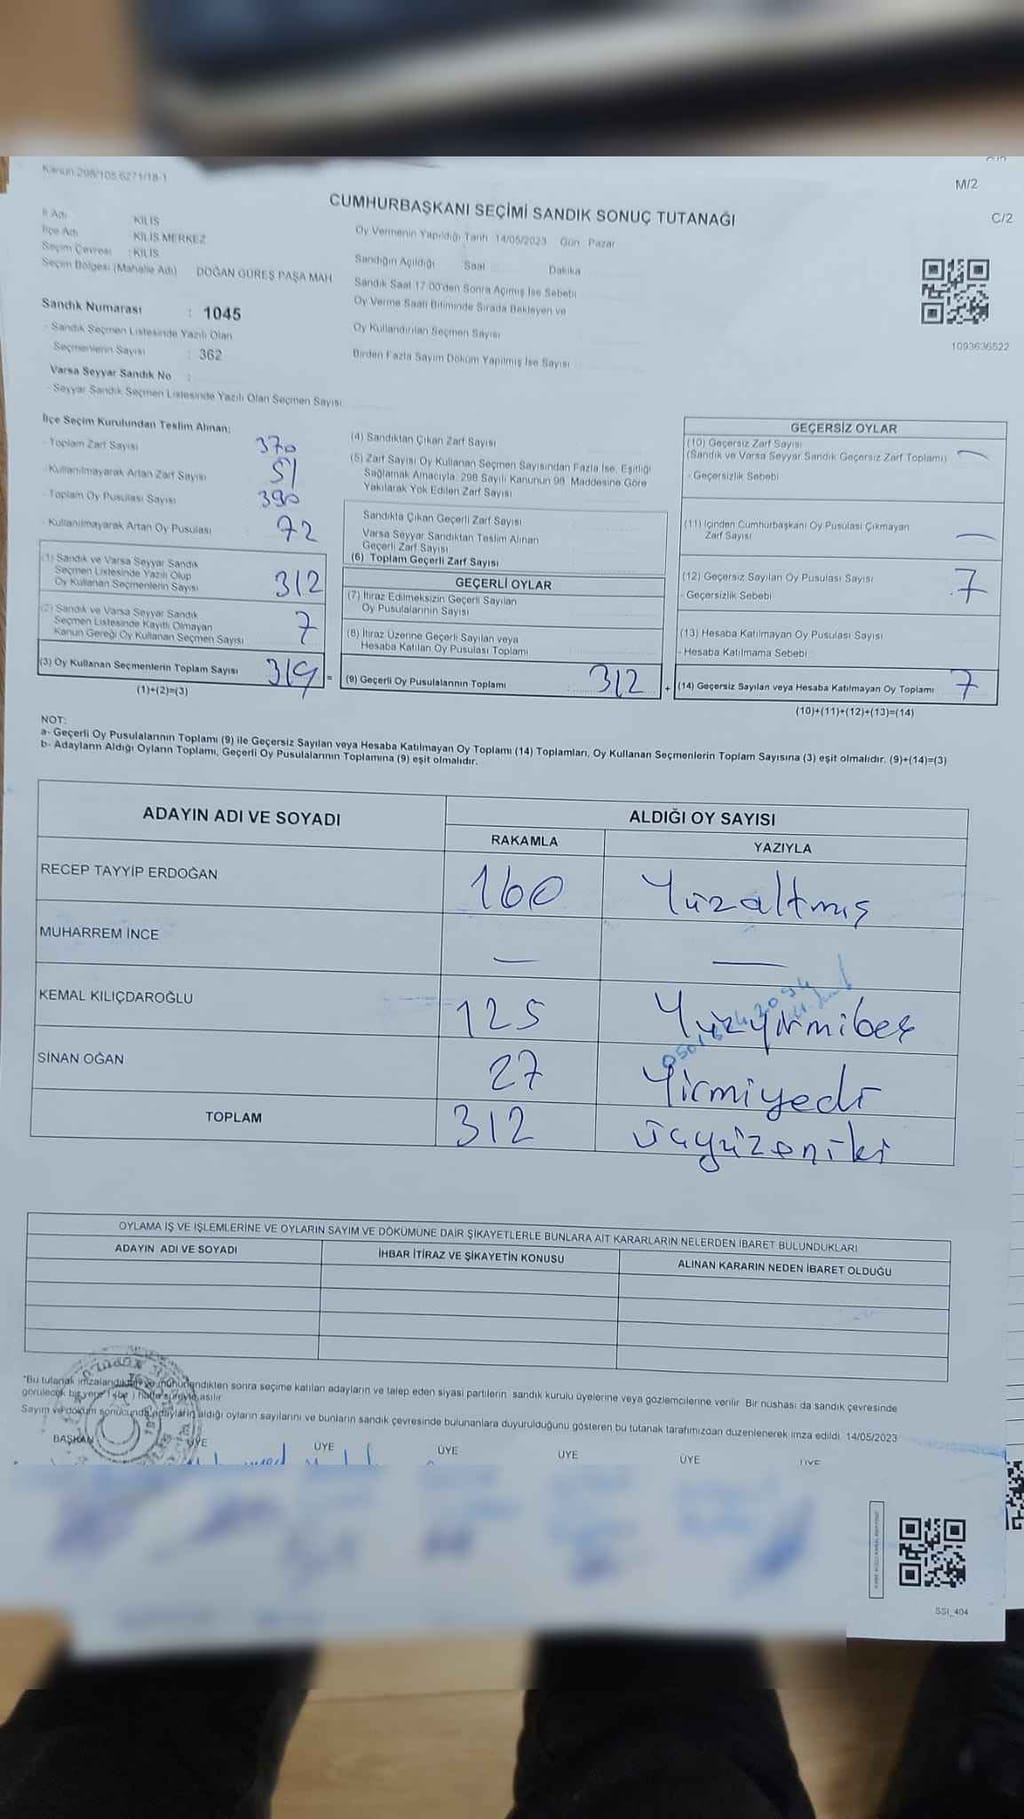 Kanun 298/105 6271/18-1
M/2
C/2
CUMHURBAŞKANI SEÇİMİ SANDIK SONUÇ TUTANAĞI
İl Adı : KİLİS
İlçe Adı : KİLİS MERKEZ
Seçim Çevresi : KİLİS
Seçim Bölgesi (Mahalle Adı) DOĞAN GÜREŞ PAŞA MAH
Sandık Numarası : 1045
- Sandık Seçmen Listesinde Yazılı Olan
Seçmenlerin Sayısı : 362
Varsa Seyyar Sandık No :
- Seyyar Sandık Seçmen Listesinde Yazılı Olan Seçmen Sayısı
Oy Vermenin Yapıldığı Tarih 14/05/2023 Gün Pazar
Sandığın Açıldığı Saat Dakika
Sandık Saat 17.00'den Sonra Açılmış İse Sebebi
Oy Verme Saati Bitiminde Sırada Bekleyen ve
Oy Kullandırılan Seçmen Sayısı
Birden Fazla Sayım Döküm Yapılmış İse Sayısı
1093636522
İlçe Seçim Kurulundan Teslim Alınan;
- Toplam Zarf Sayısı 370
- Kullanılmayarak Artan Zarf Sayısı 51
- Toplam Oy Pusulası Sayısı 390
- Kullanılmayarak Artan Oy Pusulası 72
(1) Sandık ve Varsa Seyyar Sandık
Seçmen Listesinde Yazılı Olup
Oy Kullanan Seçmenlerin Sayısı 312
(2) Sandık ve Varsa Seyyar Sandık
Seçmen Listesinde Kayıtlı Olmayan
Kanun Gereği Oy Kullanan Seçmen Sayısı 7
(3) Oy Kullanan Seçmenlerin Toplam Sayısı 319 =
(1)+(2)=(3)
(4) Sandıktan Çıkan Zarf Sayısı
(5) Zarf Sayısı Oy Kullanan Seçmen Sayısından Fazla İse, Eşitliği
Sağlamak Amacıyla, 298 Sayılı Kanunun 98. Maddesine Göre
Yakılarak Yok Edilen Zarf Sayısı
Sandıkta Çıkan Geçerli Zarf Sayısı
Varsa Seyyar Sandıktan Teslim Alınan
Geçerli Zarf Sayısı
(6) Toplam Geçerli Zarf Sayısı
GEÇERLİ OYLAR
(7) İtiraz Edilmeksizin Geçerli Sayılan
Oy Pusulalarının Sayısı
(8) İtiraz Üzerine Geçerli Sayılan veya
Hesaba Katılan Oy Pusulası Toplamı
(9) Geçerli Oy Pusulalarının Toplamı 312 +
GEÇERSİZ OYLAR
(10) Geçersiz Zarf Sayısı
(Sandık ve Varsa Seyyar Sandık Geçersiz Zarf Toplamı) —
- Geçersizlik Sebebi
(11) İçinden Cumhurbaşkanı Oy Pusulası Çıkmayan
Zarf Sayısı —
(12) Geçersiz Sayılan Oy Pusulası Sayısı 7
- Geçersizlik Sebebi
(13) Hesaba Katılmayan Oy Pusulası Sayısı
- Hesaba Katılmama Sebebi
(14) Geçersiz Sayılan veya Hesaba Katılmayan Oy Toplamı 7
(10)+(11)+(12)+(13)=(14)
NOT:
a- Geçerli Oy Pusulalarının Toplamı (9) ile Geçersiz Sayılan veya Hesaba Katılmayan Oy Toplamı (14) Toplamları, Oy Kullanan Seçmenlerin Toplam Sayısına (3) eşit olmalıdır. (9)+(14)=(3)
b- Adayların Aldığı Oyların Toplamı, Geçerli Oy Pusulalarının Toplamına (9) eşit olmalıdır.
ADAYIN ADI VE SOYADI ALDIĞI OY SAYISI
RAKAMLA YAZIYLA
RECEP TAYYİP ERDOĞAN 160 Yüzaltmış
MUHARREM İNCE — —
KEMAL KILIÇDAROĞLU 125 Yüzyirmibeş
SİNAN OĞAN 27 Yirmiyedi
TOPLAM 312 üçyüzoniki
OYLAMA İŞ VE İŞLEMLERİNE VE OYLARIN SAYIM VE DÖKÜMÜNE DAİR ŞİKAYETLERLE BUNLARA AİT KARARLARIN NELERDEN İBARET BULUNDUKLARI
ADAYIN ADI VE SOYADI İHBAR İTİRAZ VE ŞİKAYETİN KONUSU ALINAN KARARIN NEDEN İBARET OLDUĞU
"Bu tutanak imzalandıktan ve mühürlendikten sonra seçime katılan adayların ve talep eden siyasi partilerin sandık kurulu üyelerine veya gözlemcilerine verilir. Bir nüshası da sandık çevresinde
görülecek bir yere hafta süreyle asılır.
Sayım ve döküm sonucunda adayların aldığı oyların sayılarını ve bunların sandık çevresinde bulunanlara duyurulduğunu gösteren bu tutanak tarafımızdan düzenlenerek imza edildi. 14/05/2023
BAŞKAN ÜYE ÜYE ÜYE ÜYE ÜYE ÜYE
SSI_404